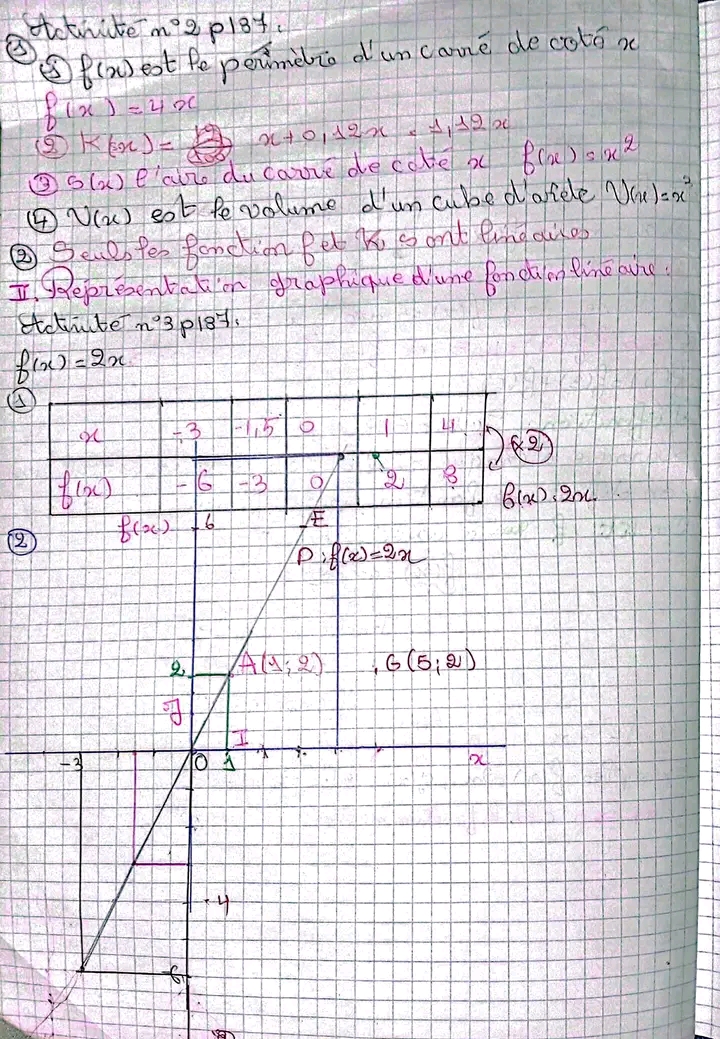 Activité n°2 p187.
① ① f(x) est le périmètre d'un carré de coté x
f(x) = 4x
② K(x) = x + 0,12x = 1,12x
③ S(x) l'aire du carré de coté x f(x) = x²
④ V(x) est le volume d'un cube d'arête V(x) = x³
② Seules les fonction f et K sont linéaires
II. Représentation graphique d'une fonction linéaire.
Activité n°3 p187.
f(x) = 2x
①
x -3 -1,5 0 1 4
×2
f(x) -6 -3 0 2 8
f(x) = 2x
② f(x) 6 E
D : f(x) = 2x
2 A(1; 2) G(5; 2)
J
I
-3 0 1 x
-4
-6